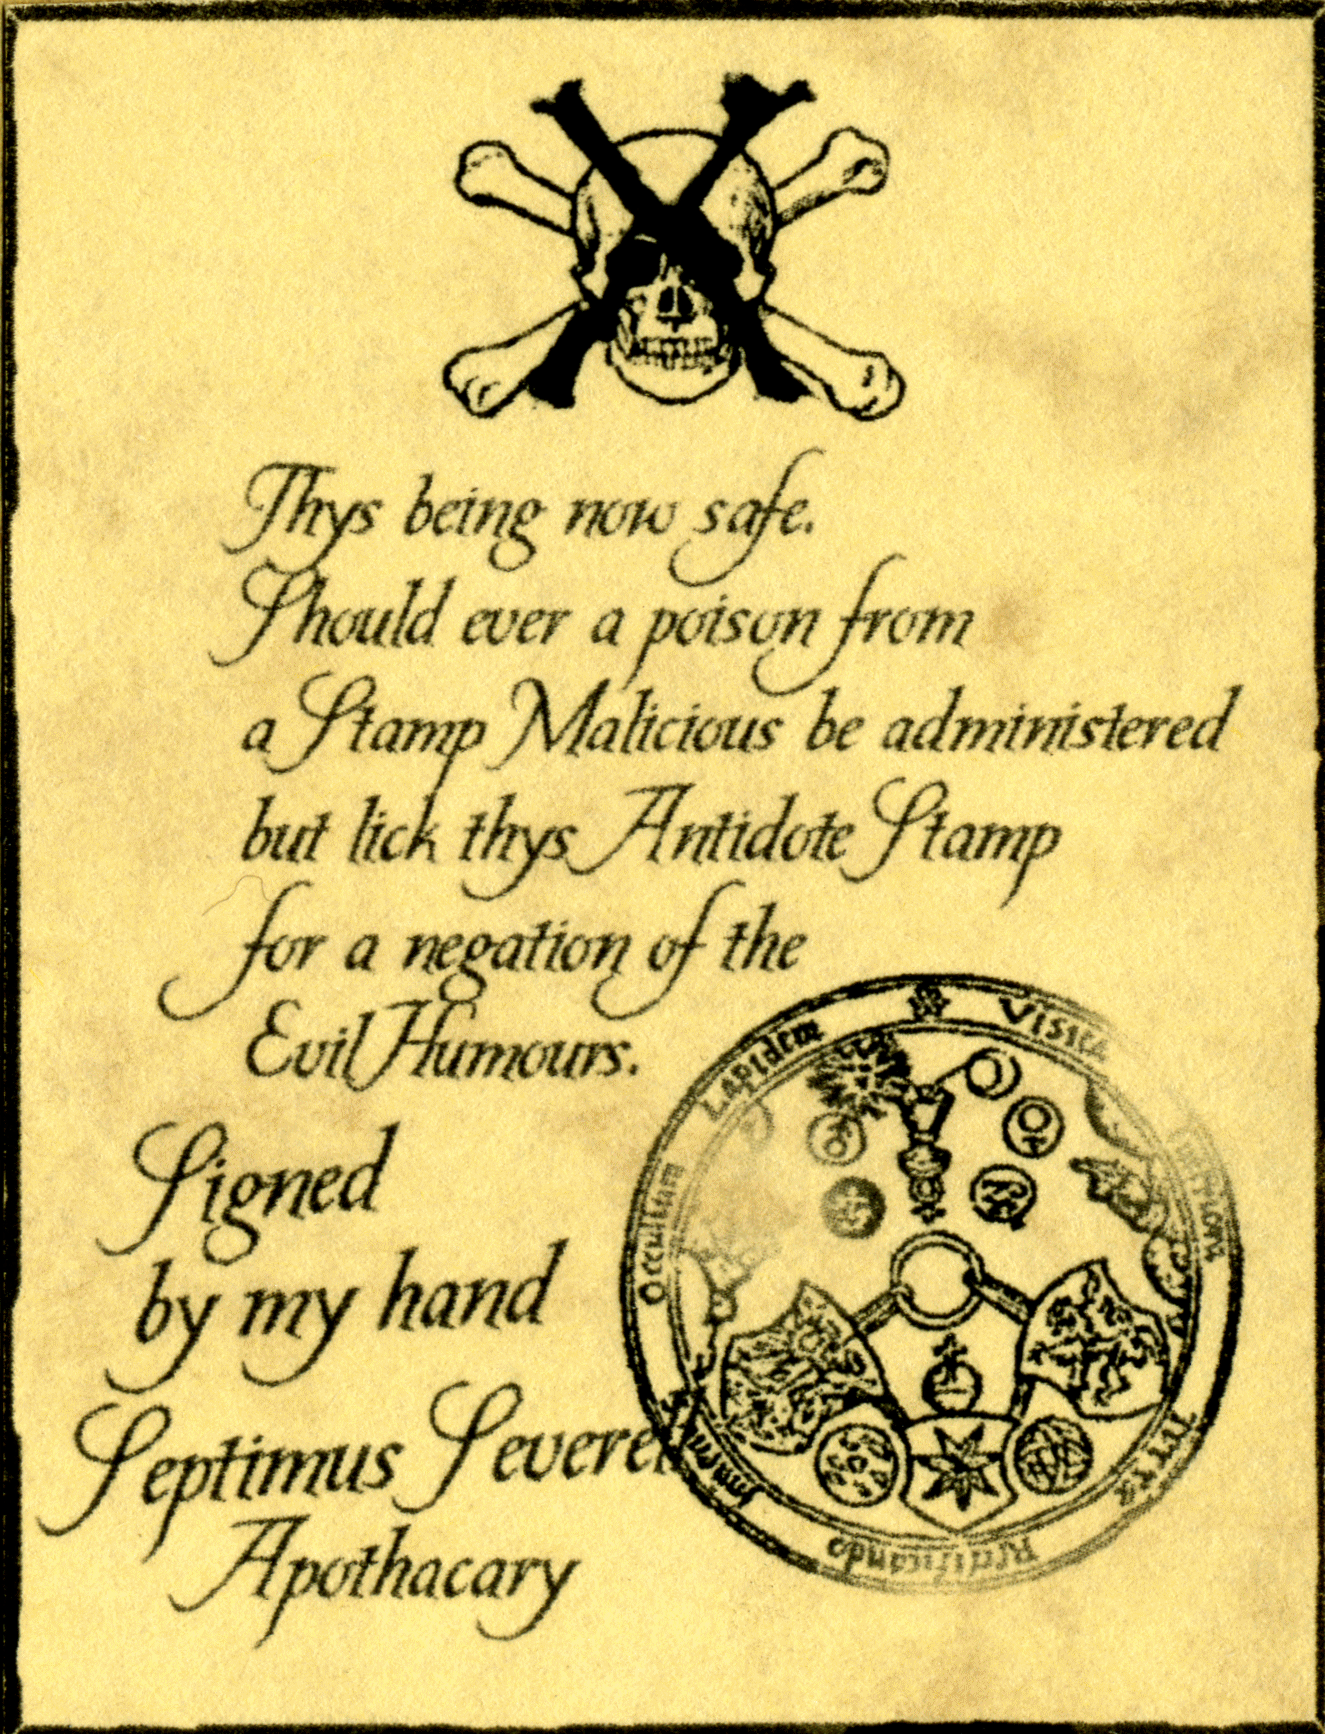 Thys being now safe.
Should ever a poison from
a Stamp Malicious be administered
but lick thys Antidote Stamp
for a negation of the
Evil Humours.
Signed
by my hand
Septimus Severell
Apothacary
Visita
Interiora
Terra
Rectificando
Occultum
Lapidem